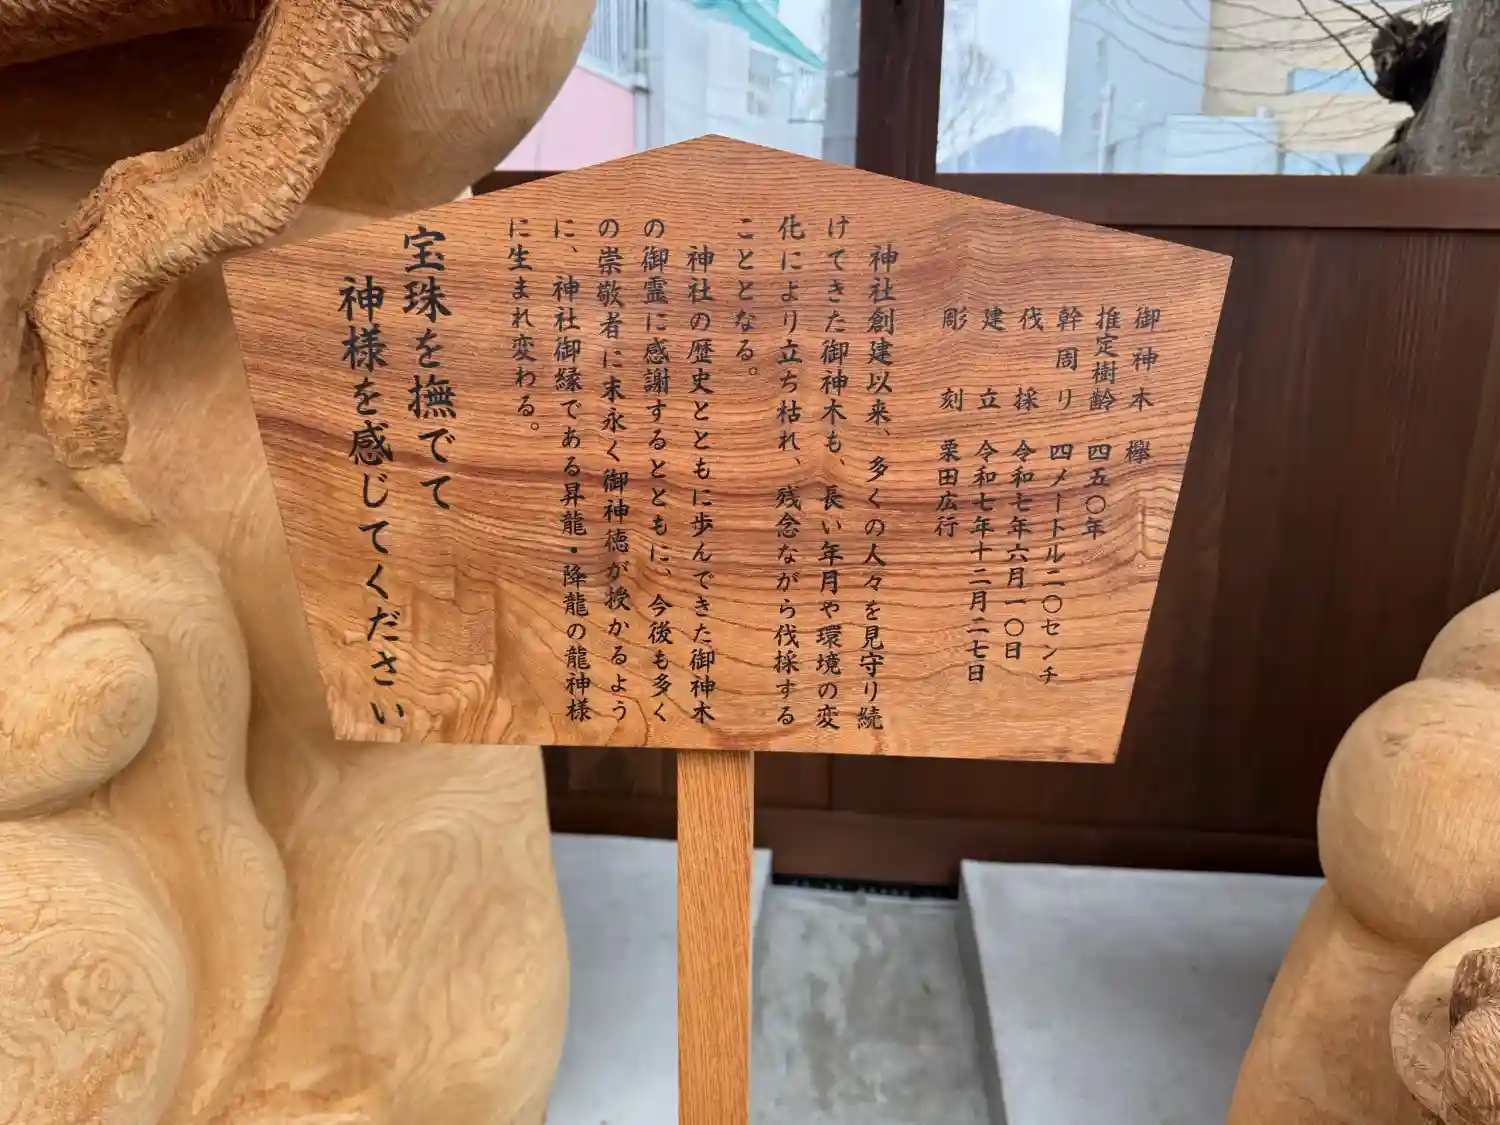 御神木 欅
推定樹齢 四五〇年
幹周り 四メートル二〇センチ
伐採 令和七年六月一〇日
建立 令和七年十二月二七日
彫刻 栗田広行
神社創建以来、多くの人々を見守り続
けてきた御神木も、長い年月や環境の変
化により立ち枯れ、残念ながら伐採する
こととなる。
神社の歴史とともに歩んできた御神木
の御霊に感謝するとともに、今後も多く
の崇敬者に末永く御神徳が授かるよう
に、神社御縁である昇龍・降龍の龍神様
に生まれ変わる。
宝珠を撫でて
神様を感じてください